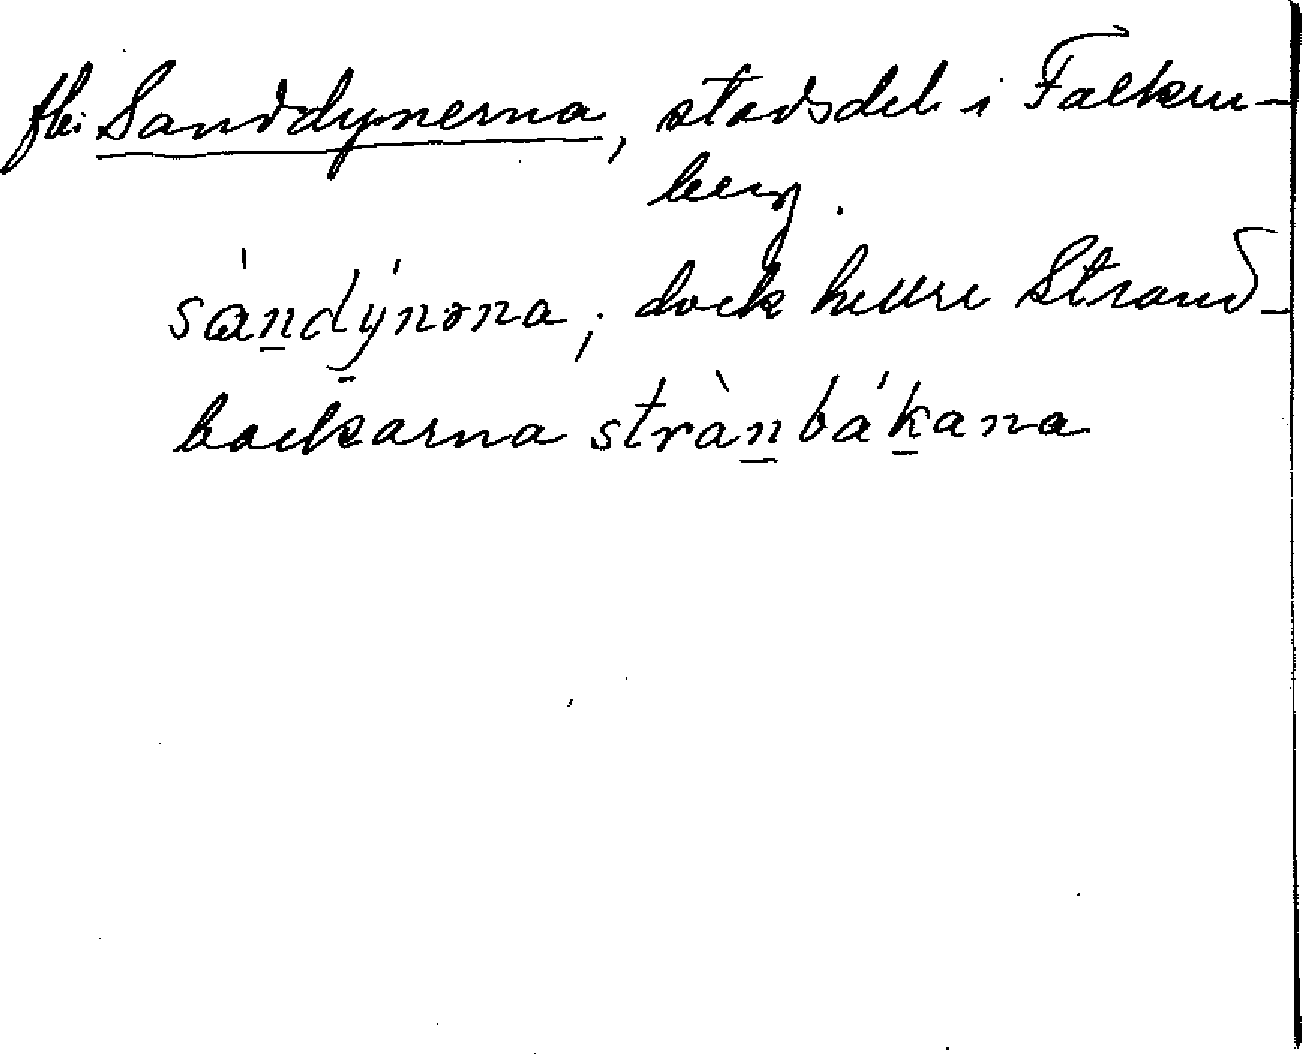 fbi Sanddynerna, stadsdel i Falken-
berg.
sàndýnǝna; dock hellre Strand-
backarna strànbákana